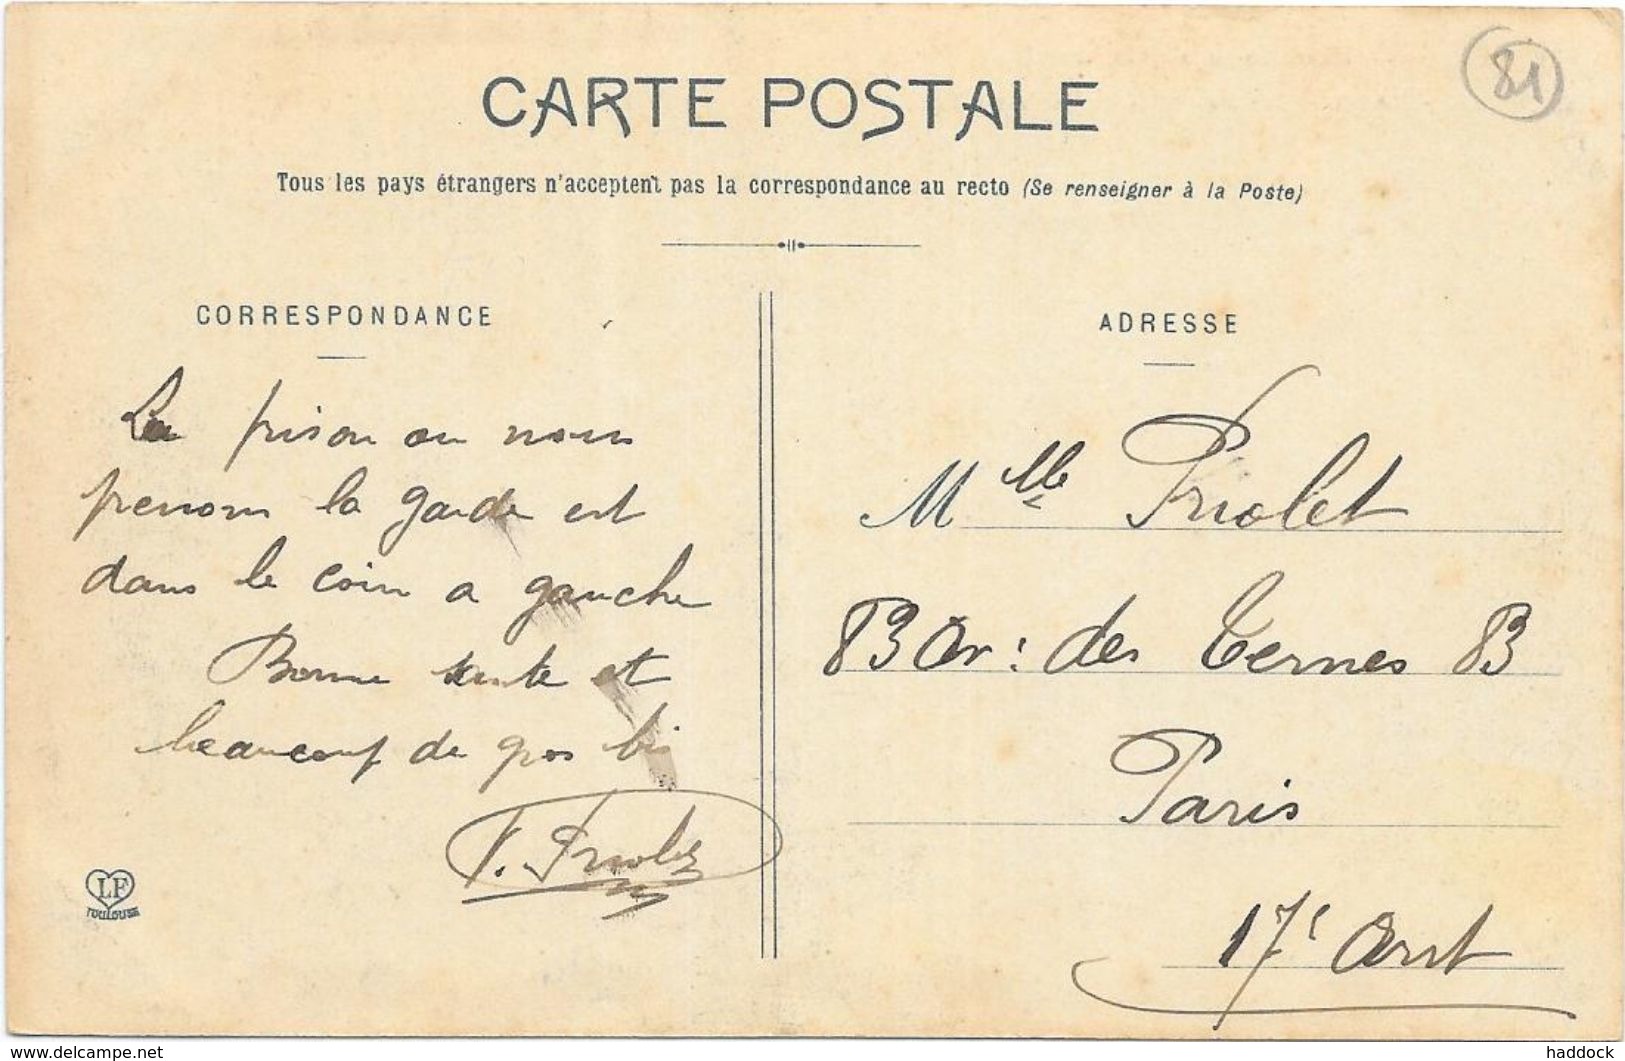 81
CARTE POSTALE
Tous les pays étrangers n'acceptent pas la correspondance au recto (Se renseigner à la Poste)
CORRESPONDANCE
La prison ou nous
prenons la garde est
dans le coin a gauche
Bonne sante et
beaucoup de gros bis
P. Priolet
LF
TOULOUSE
ADRESSE
Mlle Priolet
83 Av: des Ternes 83
Paris
17e Arrt
www.delcampe.net
haddock